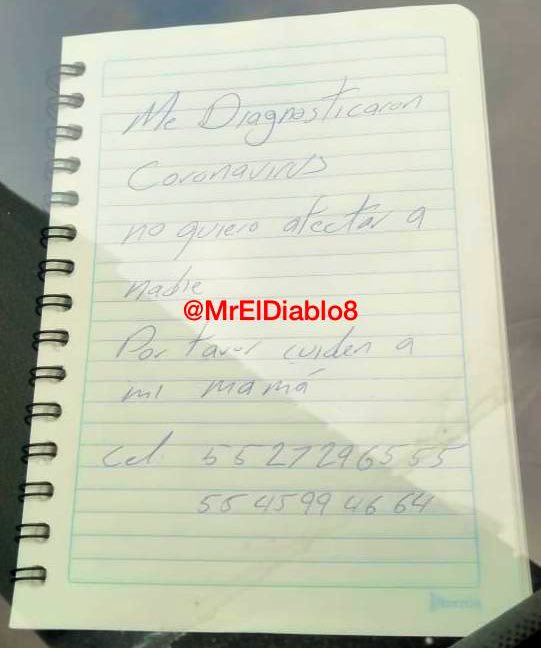 Me Diagnosticaron
Coronavirus
no quiero afectar a
nadie
@MrElDiablo8
Por favor cuiden a
mi mamá
Cel. 5527296555
55 45 99 46 64